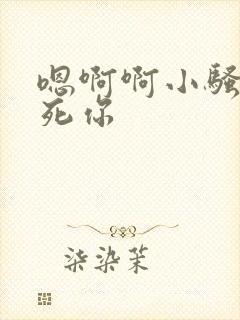 嗯啊啊小骚
死你
柒染茉